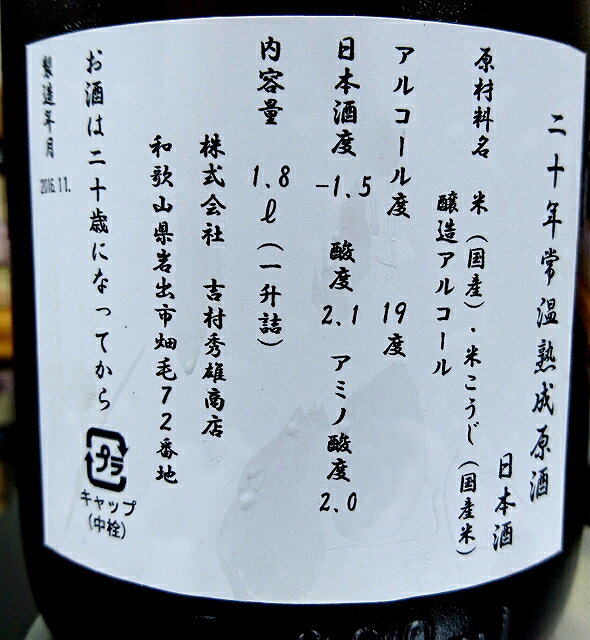 二十年常温熟成原酒
日本酒
原材料名 米(国産)・米こうじ(国産米)
醸造アルコール
アルコール度 19度
日本酒度 -1.5 酸度 2.1 アミノ酸度 2.0
内容量 1.8ℓ(一升詰)
株式会社 吉村秀雄商店
和歌山県岩出市畑毛72番地
お酒は二十歳になってから
製造年月 2016.11.
プラ
キャップ
(中栓)